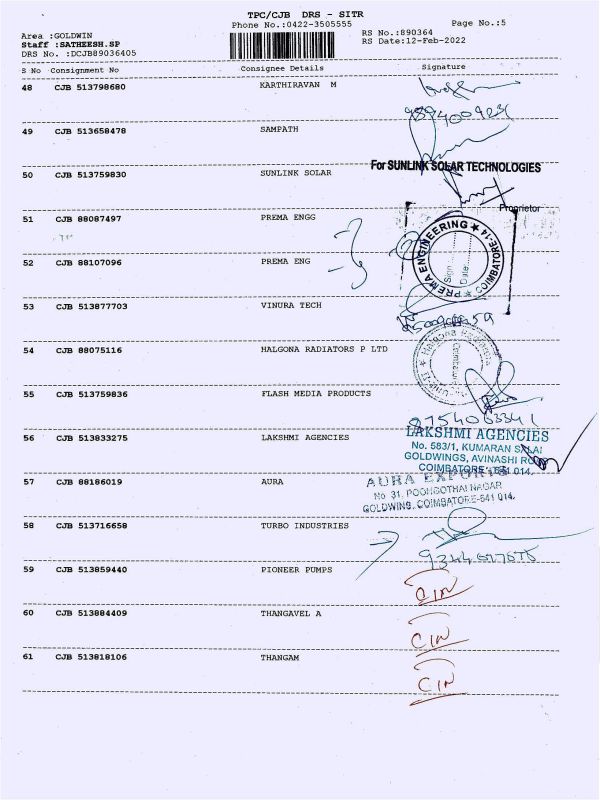 TPC/CJB DRS - SITR
Phone No.:0422-3505555
Page No.:5
Area :GOLDWIN
RS No.:890364
Staff :SATHEESH.SP
RS Date:12-Feb-2022
DRS No. :DCJB89036405
S No Consignment No Consignee Details Signature
48 CJB 513798680 KARTHIRAVAN M
49 CJB 513658478 SAMPATH
For SUNLINK SOLAR TECHNOLOGIES
50 CJB 513759830 SUNLINK SOLAR
Proprietor
51 CJB 88087497 PREMA ENGG
PREMA ENGINEERING ★ COIMBATORE-14 ★
Sign
Date
52 CJB 88107096 PREMA ENG
53 CJB 513877703 VINURA TECH
54 CJB 88075116 HALGONA RADIATORS P LTD
55 CJB 513759836 FLASH MEDIA PRODUCTS
9754063341
56 CJB 513833275 LAKSHMI AGENCIES
LAKSHMI AGENCIES
No. 583/1, KUMARAN SALAI
GOLDWINGS, AVINASHI ROAD
COIMBATORE - 641 014.
57 CJB 88186019 AURA
AURA EXPORTS
No 31, POONGOTHAI NAGAR
GOLDWINS, COIMBATORE-641 014.
58 CJB 513716658 TURBO INDUSTRIES
59 CJB 513859440 PIONEER PUMPS
CIN
60 CJB 513884409 THANGAVEL A
CIN
61 CJB 513818106 THANGAM
CIN